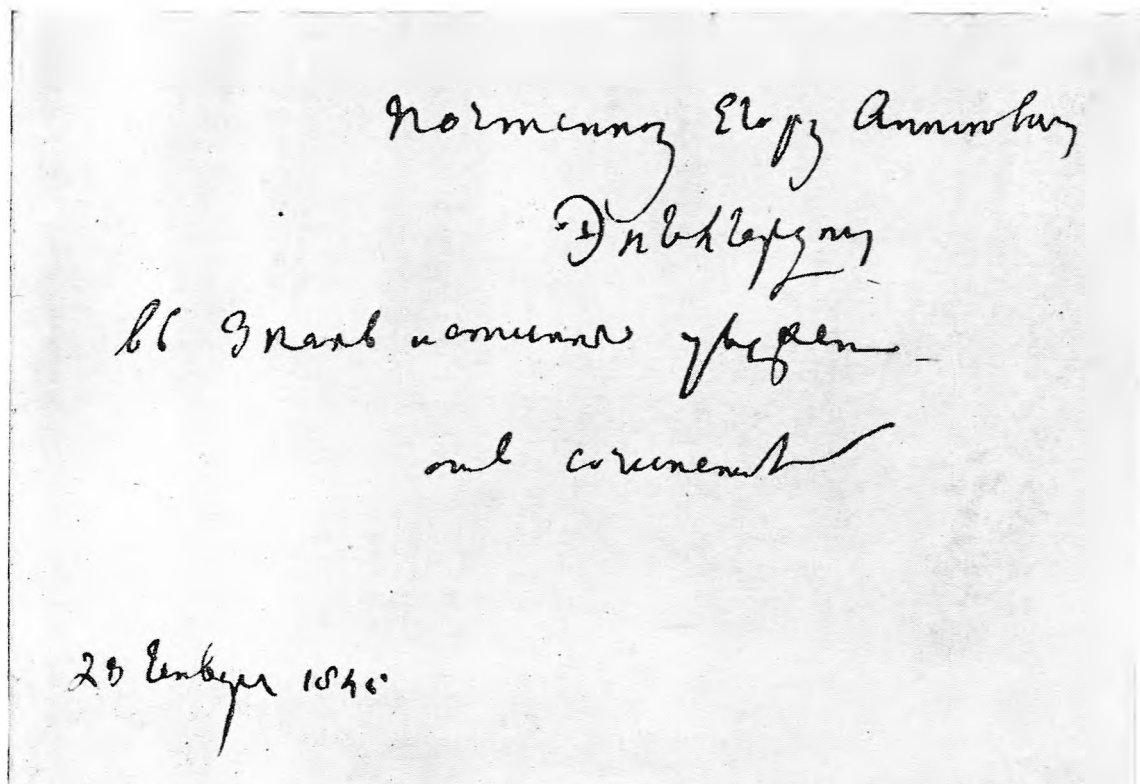 Почтенному Егору Антоновичу
Энгельгардту
въ Знакъ истиннаго уважения
отъ сочинителя
23 Генваря